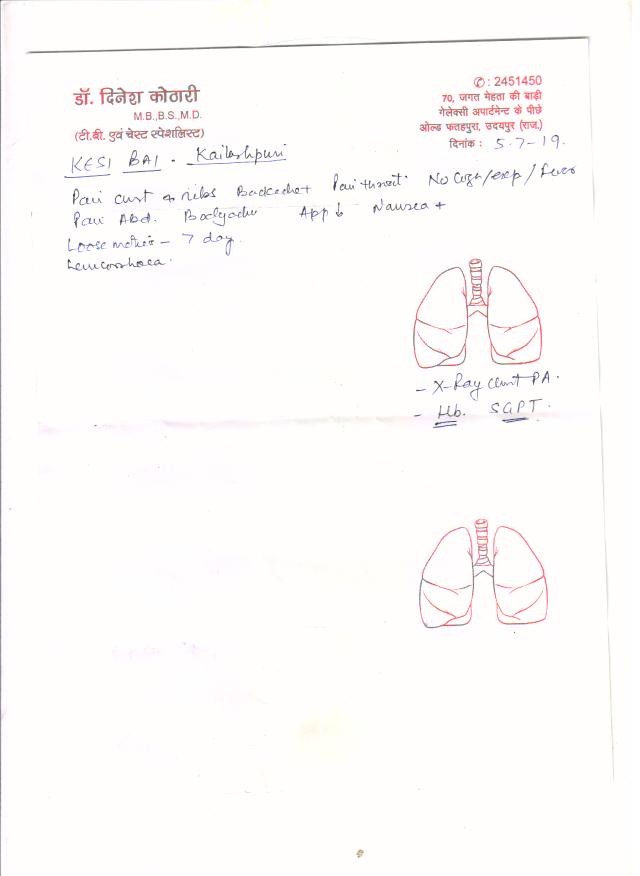 डॉ. दिनेश कोठारी
M.B.,B.S.,M.D.
(टी.बी. एवं चेस्ट स्पेशलिस्ट)
✆: 2451450
70, जगत मेहता की बाड़ी
गेलेक्सी अपार्टमेन्ट के पीछे
ओल्ड फतहपुरा, उदयपुर (राज.)
दिनांक : 5-7-19.
KESI BAI - Kailashpuri
Pain chest & ribs Backache+ Pain throat. No Cogh/exp/fever
Pain Abd. Bodyache App ↓ Nausea +
Loose motion – 7 day.
Leucorrhoea.
- X-Ray Chest PA.
- Hb. SGPT.